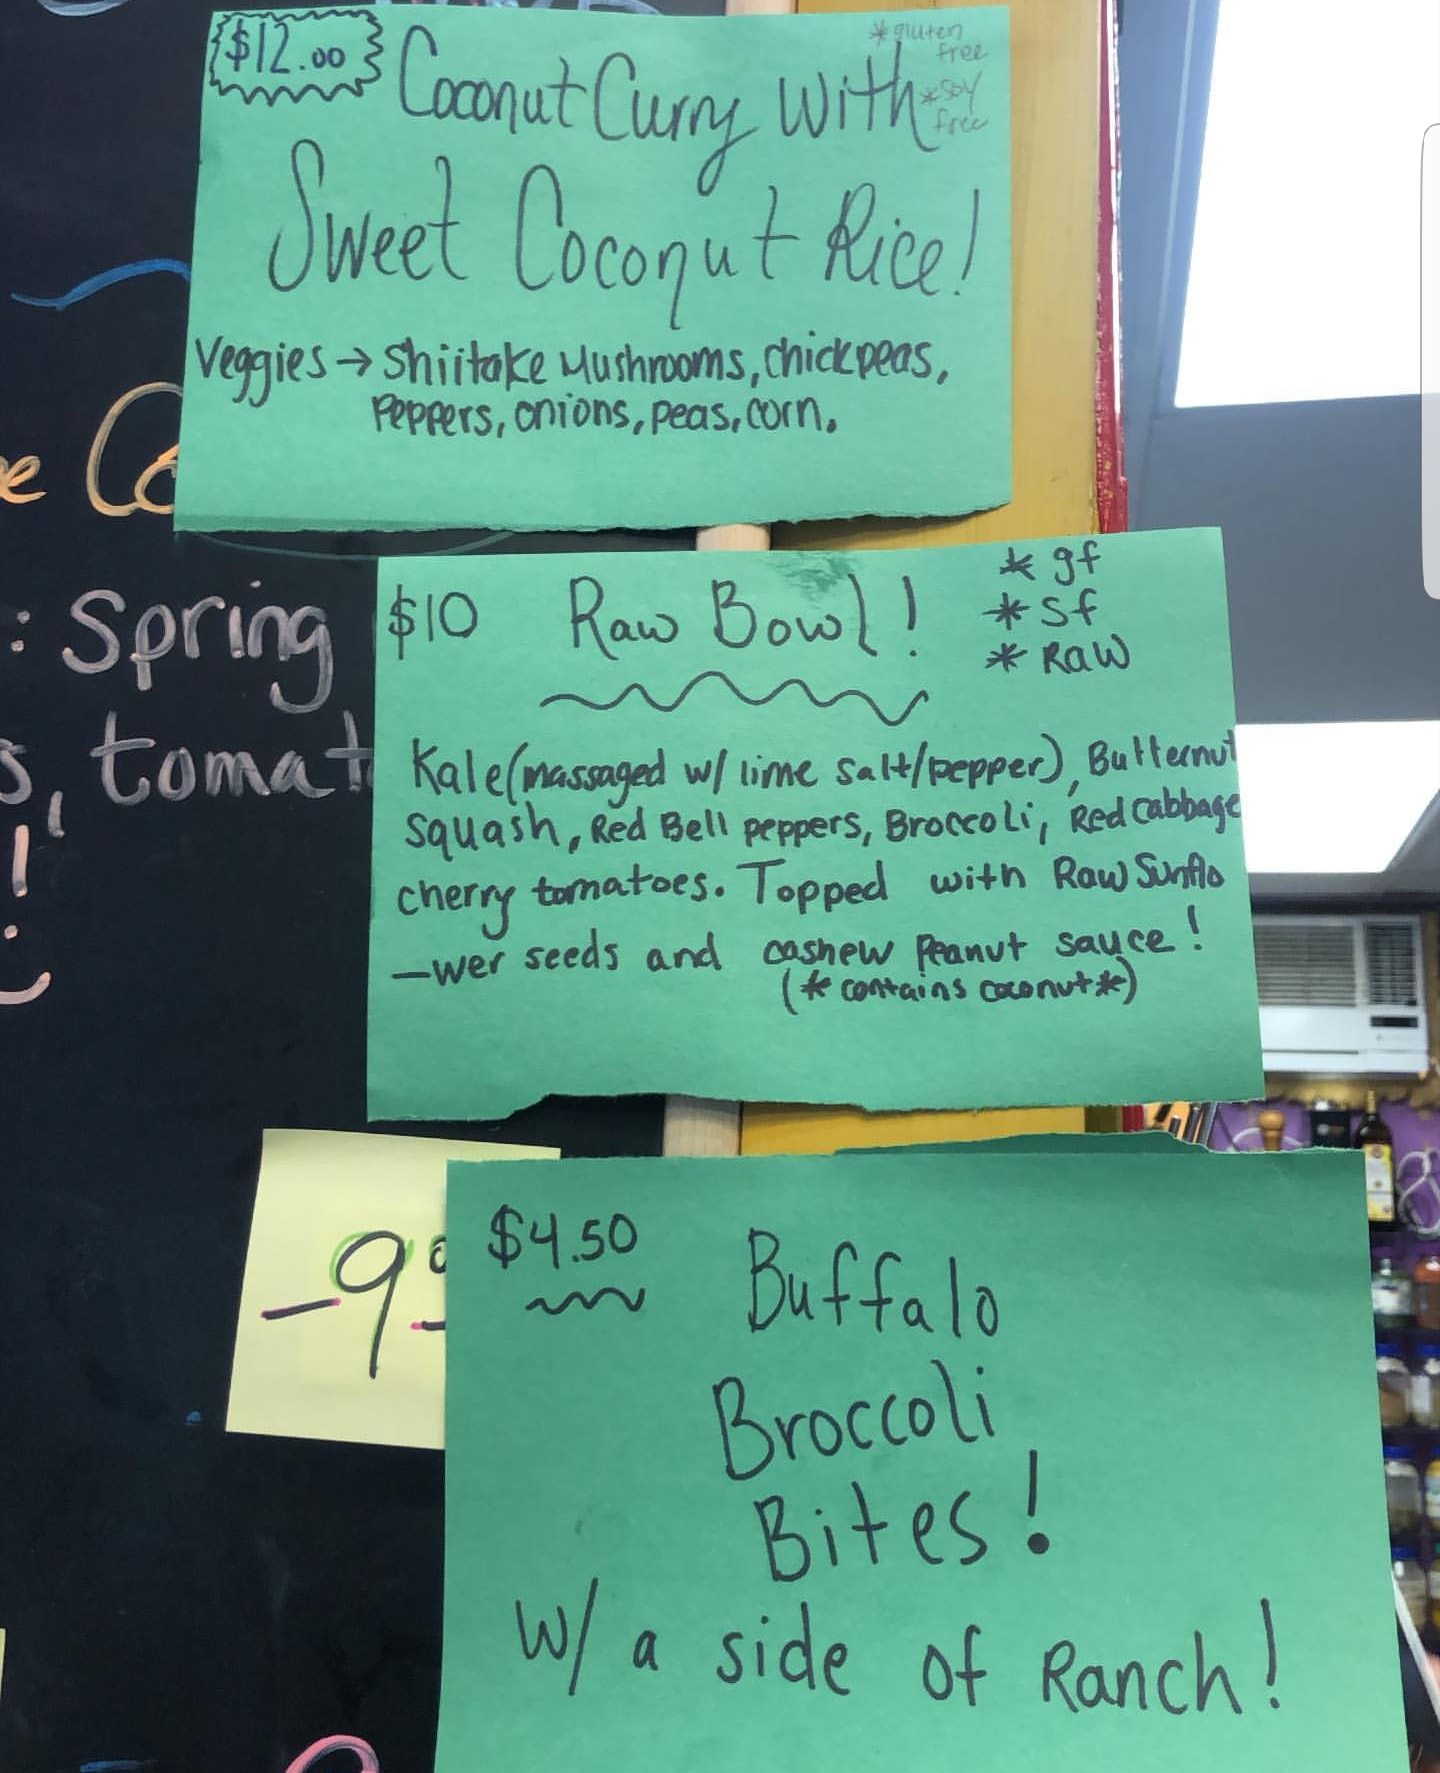 $12.00
Coconut Curry With
*gluten
free
*soy
free
Sweet Coconut Rice!
Veggies → Shiitake Mushrooms, chickpeas,
Peppers, onions, peas, corn.
: Spring
, tomat
$10 Raw Bowl!
* gf
* sf
* RAW
Kale (massaged w/ lime salt/pepper), Butternut
squash, Red Bell peppers, Broccoli, Red cabbage
cherry tomatoes. Topped with Raw Sunflo
-wer seeds and cashew Peanut sauce!
(* contains coconut *)
9
$4.50
Buffalo
Broccoli
Bites!
W/ a side of Ranch!